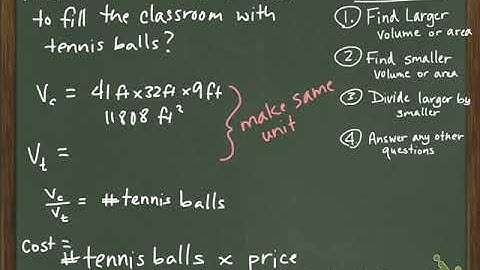 to fill the classroom with
tennis balls?
Vc = 41ft x 32ft x 9ft
11808 ft²
make same
unit
Vt =
Vc/Vt = # tennis balls
Cost =
# tennis balls x price
1. Find Larger
volume or area
2 Find smaller
volume or area
3 Divide larger by
smaller
4 Answer any other
questions